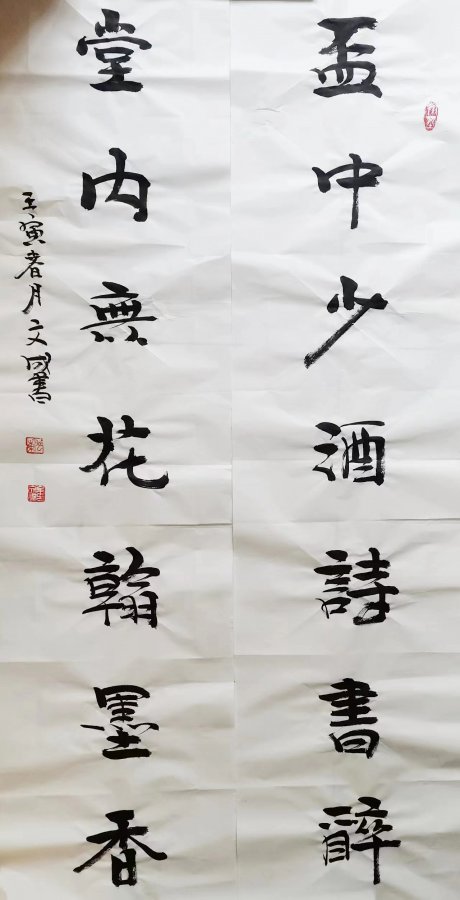 盃中少酒詩書醉
堂内無花翰墨香
壬寅春月文成書